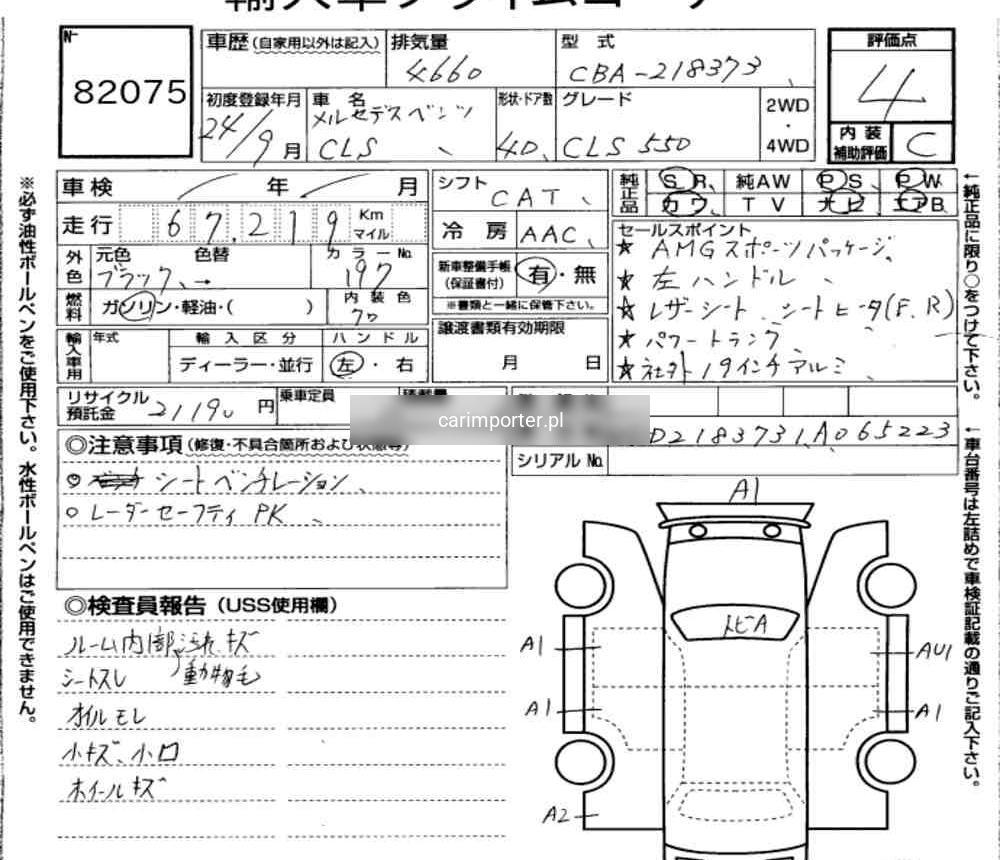 No.
82075
車歴(自家用以外は記入)
排気量
4660
型式
CBA-218373
評価点
4
内装
補助評価
C
初度登録年月
24/9月
車名
メルセデスベンツ
CLS
形状・ドア数
4D
グレード
CLS 550
2WD
・
4WD
車検 年 月
走行 67,219 Km
マイル
外色
元色 色替 カラーNo.
ブラック → 197
燃料
ガソリン・軽油・( )
内装色
輸入車用
年式
輸入区分
ディーラー・並行
ハンドル
左・右
シフト
CAT
冷房
AAC
新車整備手帳
(保証書付)
有・無
※書類と一緒に保管下さい。
譲渡書類有効期限
月 日
純正品
SR 純AW PS PW
カワ TV ナビ エアB
セールスポイント
★ AMGスポーツパッケージ
★ 左ハンドル
★ レザーシート、シートヒータ(F,R)
★ パワートランク
★ 社外19インチアルミ
リサイクル
預託金
21190円
乗車定員
carimporter.pl
D218373 1A065223
シリアルNo.
◎注意事項(修復・不具合箇所および状態等)
シートベンチレーション
レーダーセーフティPK
◎検査員報告(USS使用欄)
ルーム内部汚れキズ
シートスレ 動物毛
オイルモレ
小キズ、小凹
ホイールキズ
A1
トビA
A1
AU1
A1
A1
A2
※必ず油性ボールペンをご使用下さい。水性ボールペンはご使用できません。
←純正品に限り○をつけて下さい。
←車台番号は左詰めで車検証記載の通りご記入下さい。